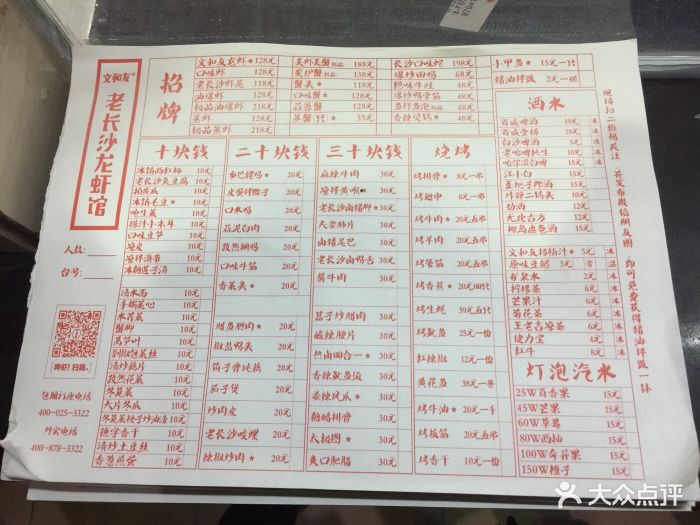 文和友
老长沙龙虾馆
人数：
台号：
开虾！扫我。
包厢订座电话
400-025-3322
外卖电话
400-878-3322
招牌
文和友龙虾★ 128元
口味虾 128元
老长沙虾尾 128元
油爆虾 128元
极品油爆虾 218元
蒸虾 128元
极品蒸虾 218元
188元
138元
蟹头★ 128元
口味蟹★ 128元
蒜蓉蟹 128元
35元
长沙口味蛇 198元
爆炒田鸡 48元
48元
68元
68元
香辣烧锅★ 68元
小甲鱼★ 15元一只
猪油拌饭 2元一碗
十块钱
冰镇西红柿 10元
老长沙臭豆腐 10元
拍黄瓜 10元
冰镇毛豆★ 10元
呛生菜 10元
捞汁小木耳 10元
口味豆笋 10元
凉皮 10元
凉拌海带 10元
冰镇莲子汤 10元
清水面 10元
手撕菜心 10元
10元
蟹脚 10元
莴笋叶 10元
剁椒包菜丝 10元
清炒藕片 10元
孜然花菜 10元
冬苋菜 10元
大片冬瓜 10元
冬苋菜梗子炒油渣 10元
德字香干 10元
清炒土豆丝 10元
香葱煎蛋 10元
二十块钱
乡巴佬鸡 20元
皮蛋拌擂子 20元
口水鸡 20元
蒜泥白肉 20元
孜然掌鸡 20元
口味牛筋 20元
香菜头★ 20元
腊鱼腊肉★ 20元
椒盐鸭头 20元
笛子香炖藕 20元
茄子煲 20元
炒肉皮 20元
老长沙嗦螺 20元
辣椒炒肉★ 20元
三十块钱
麻辣牛肉 30元
凉拌黄喉 30元
老长沙卤猪脚★ 30元
夫妻肺片 30元
卤猪尾巴 30元
老长沙卤鸭舌 30元
酱牛肉 30元
茑子炒腊肉 30元
酸辣腰片 30元
热卤四合一★ 30元
香辣鱿鱼须 30元
姜辣凤爪★ 30元
糖醋排骨 30元
太极图★ 30元
爽口肥肠 30元
烧烤
烤排骨★ 8元一串
烤翅中 8元一串
烤牛肉★ 20元五串
烤羊肉 20元五串
烤筋 20元五串
烤香蕉★ 20元四串
烤生蚝 39元五只
烤鱿鱼 25元一份
虹辣椒 12元一份
黄花鱼 38元一条
烤牛油★ 20元五串
烤板筋 20元五串
烤香干 10元一份
酒水
百威啤酒 10元 冰
百威金樽 18元 冰
白沙啤酒 5元 冰
老哈啤纯生 10元 冰
哈尔滨白啤 15元 冰
江小白 15元
歪把子啤酒 15元
炸弹二锅头 10元
劲酒 12元
无比古方 12元
椰岛鹿龟酒 15元
文和友招牌汁★ 5元 冰
原味豆奶 3元 常 温
矿泉水 2元 冰
柠檬茶 2元 冰
芒果汁 6元 冰
菊花茶 6元 冰
王老吉凉茶 6元 冰
健力宝 4元 冰
红牛 8元 冰
灯泡汽水
25W百香果 15元
45W芒果 15元
60W草莓 15元
80W西柚 15元
100W奇异果 15元
150W橙子 15元
现场扫二维码关注 并发布微信朋友圈 即可免费获得猪油拌饭一钵
大众点评